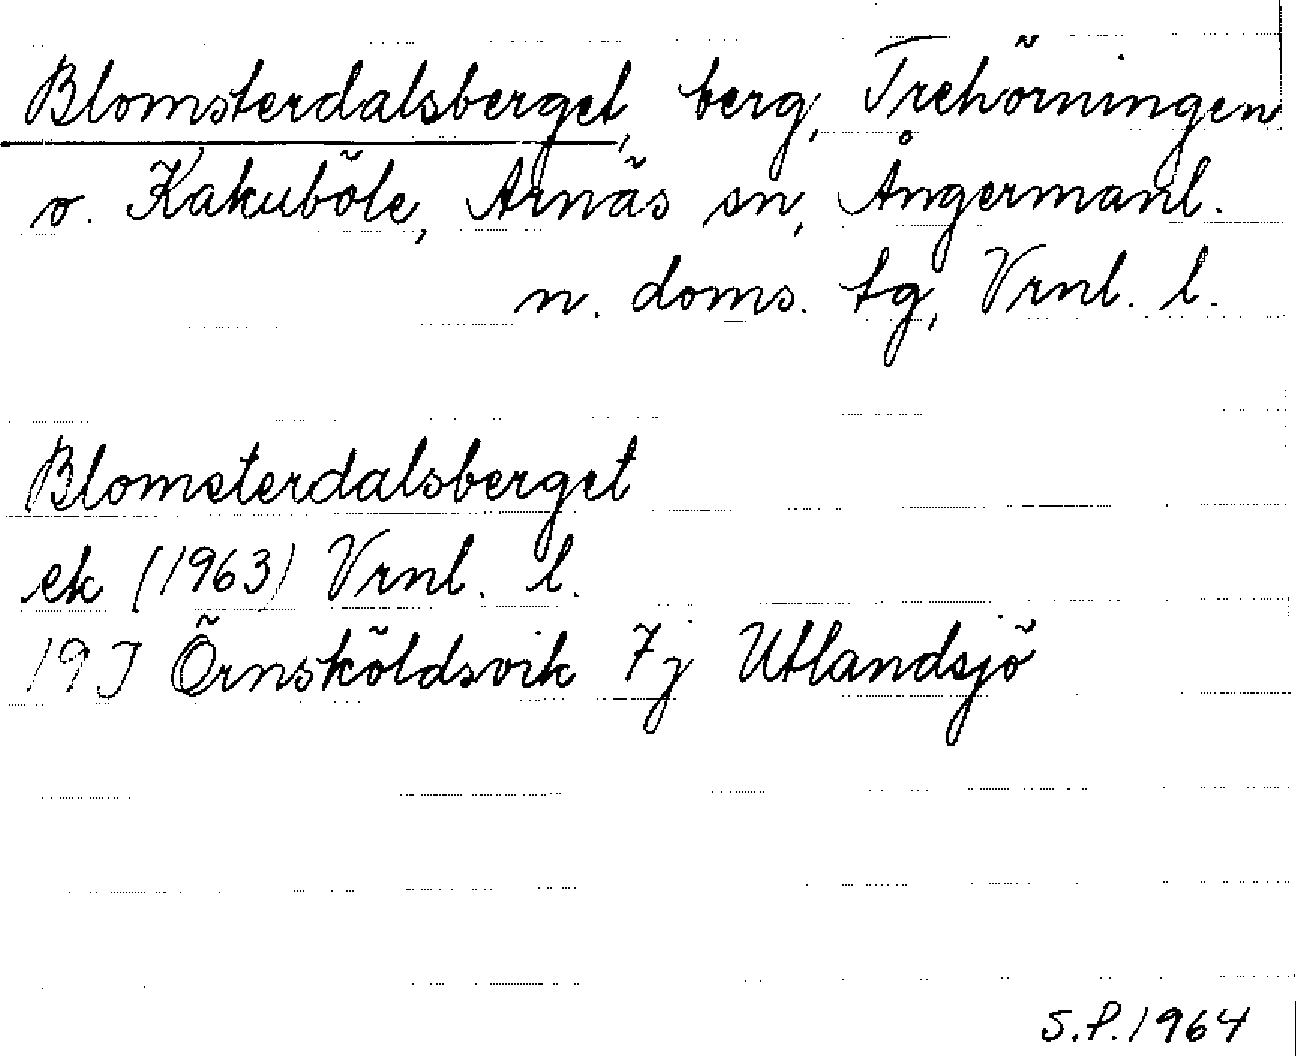 Blomsterdalsberget, berg, Trehörningen
o. Kakuböle, Arnäs sn, Ångermanl.
n. doms. tg, Vrnl. l.
Blomsterdalsberget
ek (1963) Vrnl. l.
19J Örnsköldsvik 7j Utlandsjö
S.P. 1964